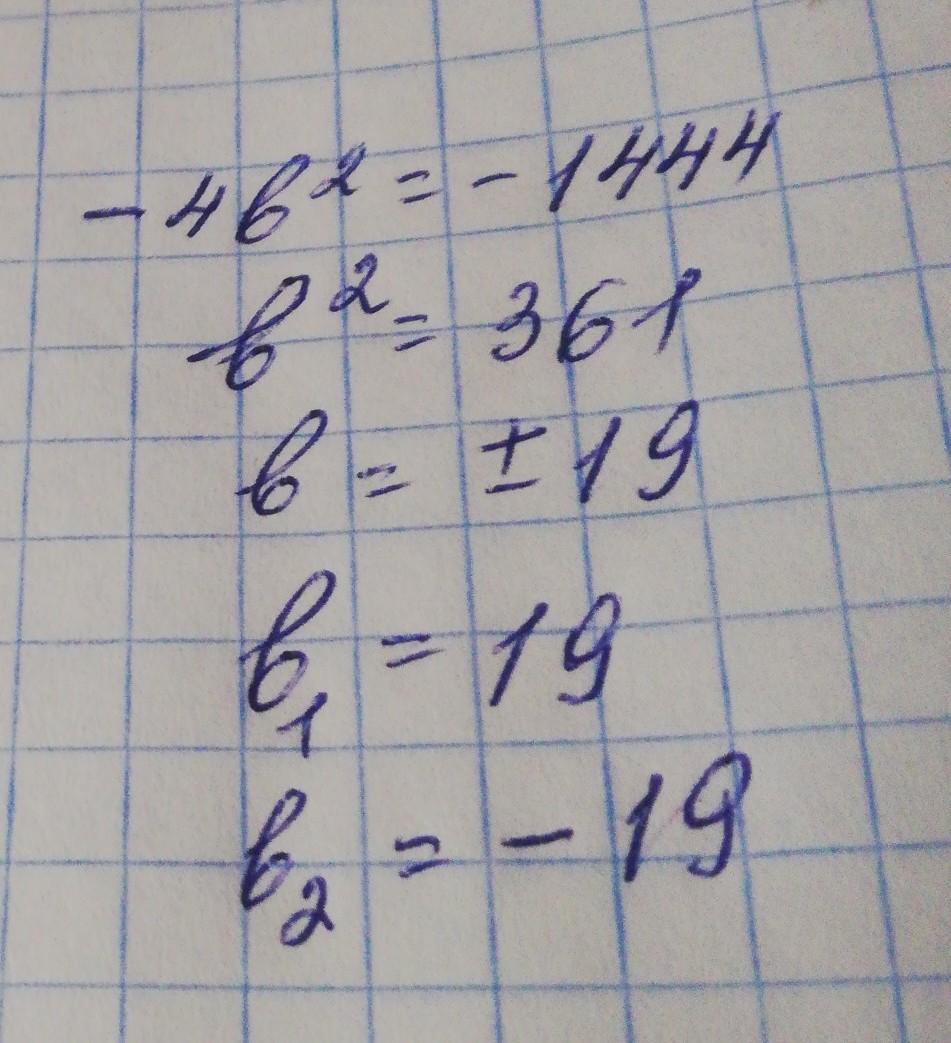 -4b² = -1444
b² = 361
b = ±19
b₁ = 19
b₂ = -19